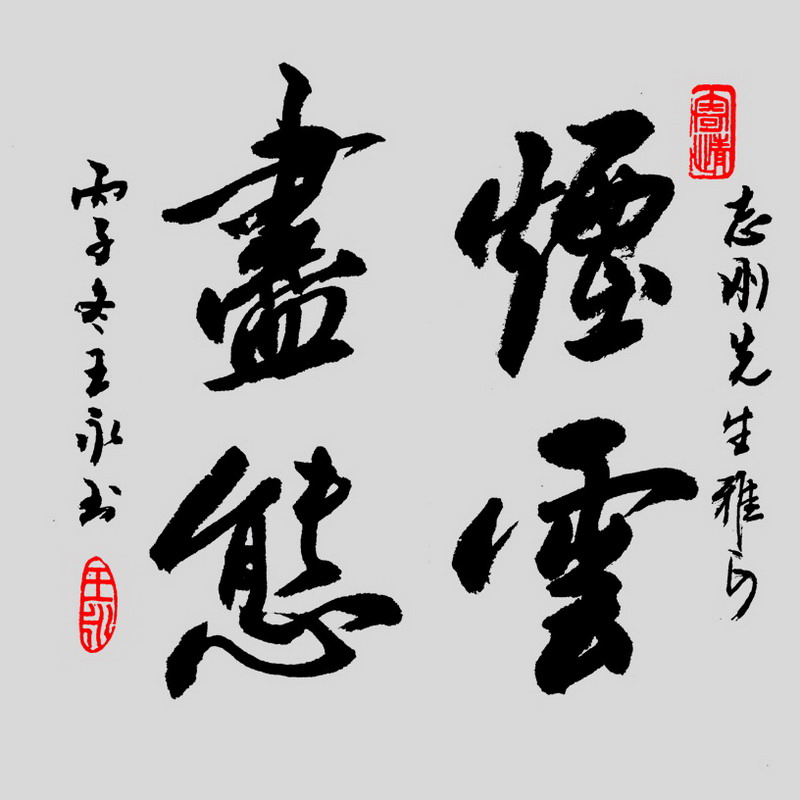 寄情
志刚先生雅正
煙雲
盡態
丙子冬王永书
王永